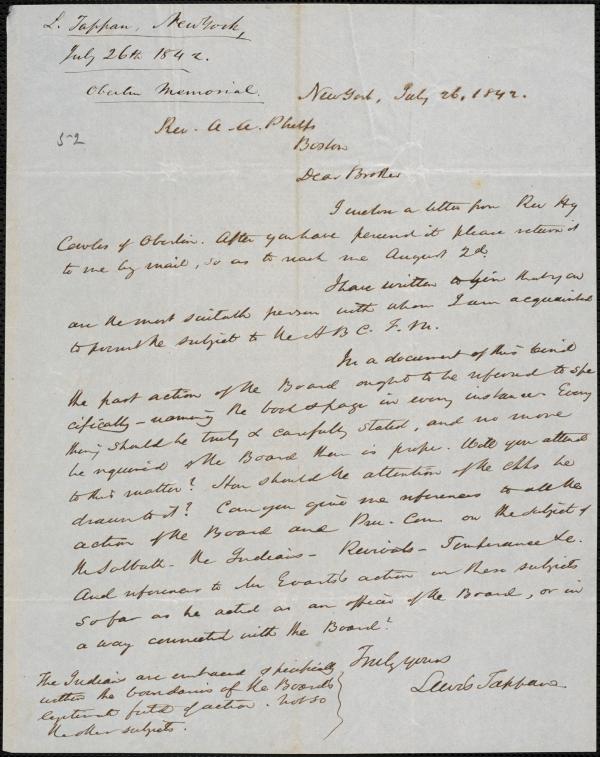 L. Tappan, New York,
July 26th 1842.
Oberlin Memorial.
52
New York, July 26, 1842.
Rev. A. A. Phelps
Boston
Dear Brother
I enclose a letter from Rev Hy
Cowles of Oberlin. After you have perused it please return it
to me by mail, so as to reach me August 2d.
I have written to him that you
are the most suitable person with whom I am acquainted
to present the subject to the A B C. F. M.
In a document of this kind
the past action of the Board ought to be referred to spe
cifically - naming the book & page in every instance. Every
thing should be truly & carefully stated, and no more
be required of the Board than is proper. Will you attend
to this matter? How should the attention of the chhs be
drawn to it? Can you give me references to all the
action of the Board and Pru. Com. on the subject of
the Sabbath - the Indians - Revivals - Temperance &c.
And references to Mr Evarts's action on these subjects
so far as he acted as an officer of the Board, or in
a way connected with the Board?
Truly yours
Lewis Tappan
The Indians are embraced specifically
within the boundaries of the Board's
legitimate field of action. Not so
the other subjects.